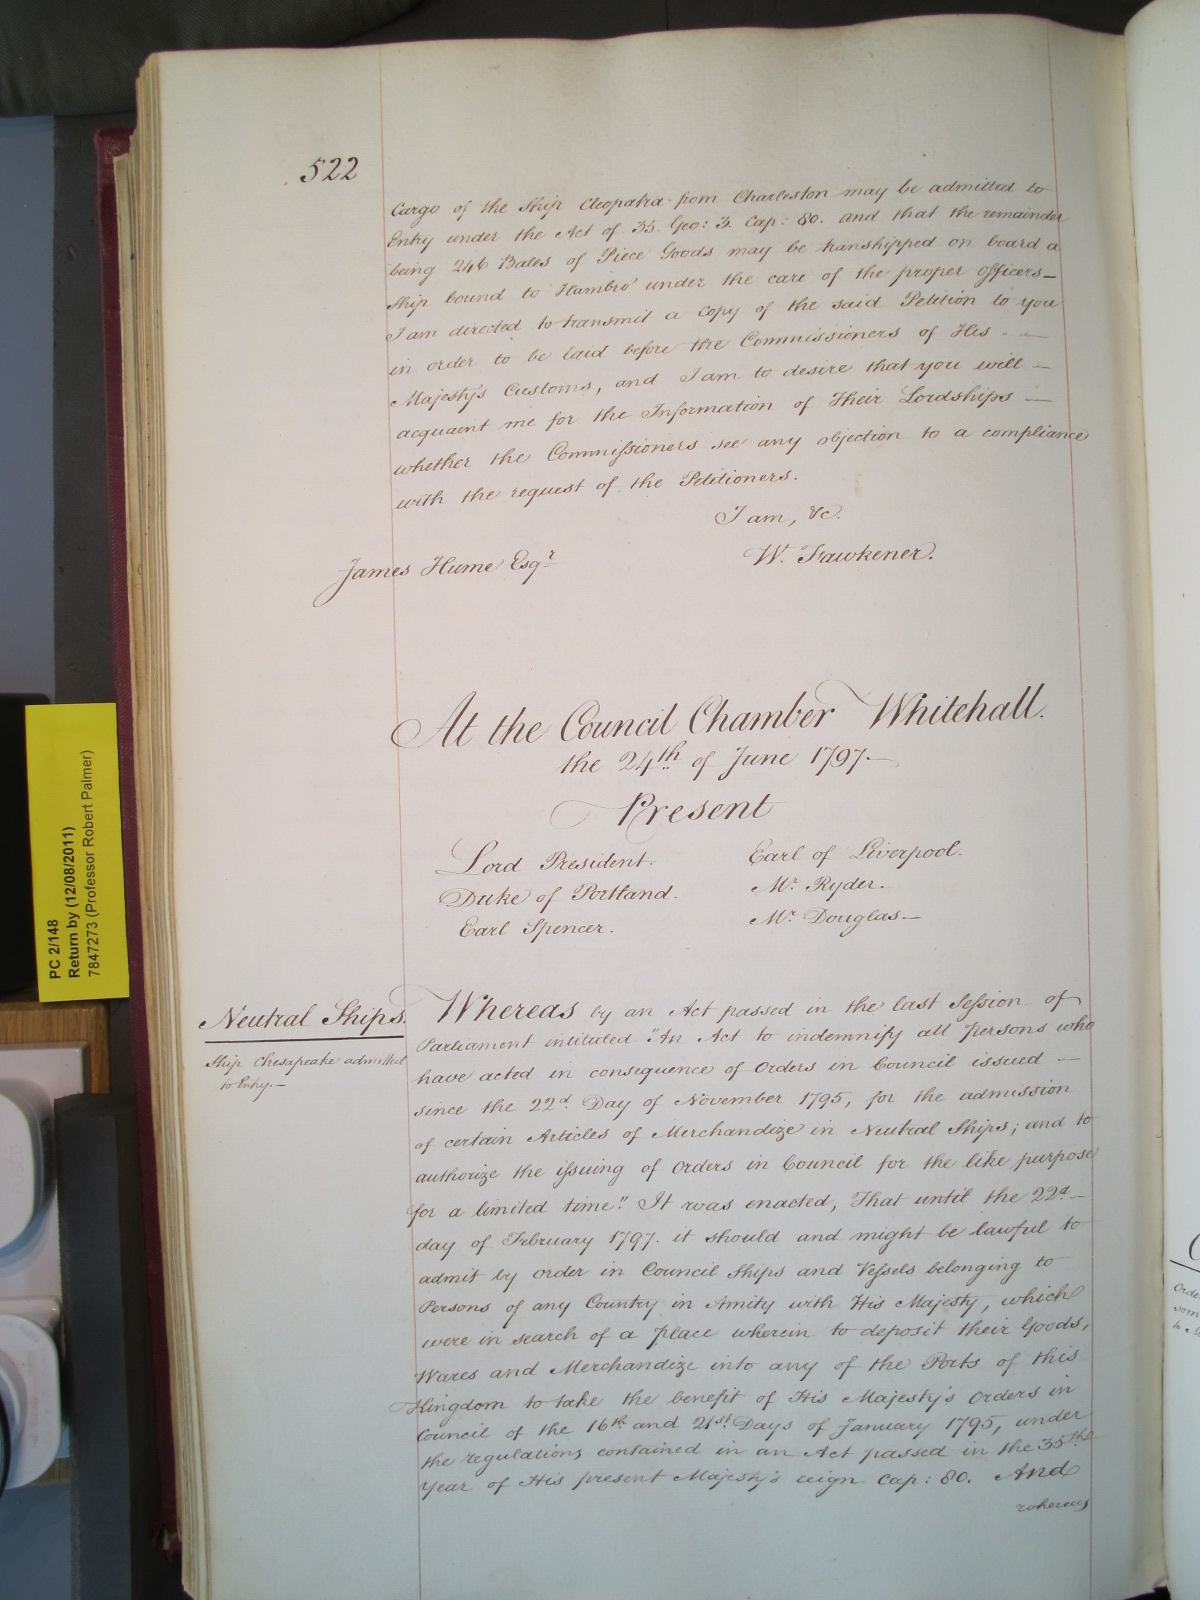 522
Cargo of the Ship Cleopatra from Charleston may be admitted to
Entry under the Act of 35. Geo: 3. Cap: 80. and that the remainder
being 246 Bales of Piece Goods may be transhipped on board a
Ship bound to Hambro' under the care of the proper Officers_
I am directed to transmit a Copy of the said Petition to you
in order to be laid before the Commissioners of His
Majesty's Customs, and I am to desire that you will —
acquaint me for the Information of Their Lordships —
whether the Commissioners see any objection to a compliance
with the request of the Petitioners.
I am, &c.
James Hume Esqr
W. Fawkener.
At the Council Chamber Whitehall.
the 24th of June 1797.—
Present
Lord President.
Earl of Liverpool.
Duke of Portland.
Mr. Ryder.
Earl Spencer.
Mr. Douglas.—
Neutral Ships.
Ship Chesapeake admitted
to Entry.—
Whereas by an Act passed in the last Session of
Parliament intituled "An Act to indemnify all Persons who
have acted in consequence of Orders in Council issued —
since the 22d. Day of November 1795, for the admission
of certain Articles of Merchandize in Neutral Ships; and to
authorize the issuing of Orders in Council for the like purpose
for a limited time." It was enacted, That until the 22d.—
day of February 1797. it should and might be lawful to
admit by order in Council Ships and Vessels belonging to
Persons of any Country in Amity with His Majesty, which
were in search of a place wherein to deposit their Goods,
Wares and Merchandize into any of the Ports of this
Kingdom to take the benefit of His Majesty's Orders in
Council of the 16th and 21st Days of January 1795, under
the regulations contained in an Act passed in the 35th
Year of His present Majesty's reign Cap: 80. And
whereas
PC 2/148
Return by (12/08/2011)
7847273 (Professor Robert Palmer)